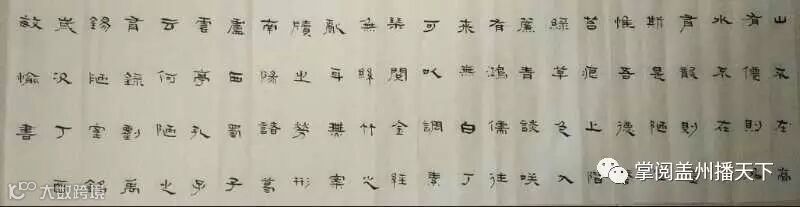 山不在高
有僊則
水不在
有龍則
斯是陋
惟吾德
苔痕上階
綠草色入
簾青談咲
有鴻儒往
来無白丁
可以調素
琴閱金經
無絲竹之
亂耳無案
牘之勞形
南陽諸葛
廬西蜀子
雲亭孔子
云何陋之
有錄劉禹
錫陋室銘
歲次丁酉
愉書
掌阅盖州播天下
大数跨境